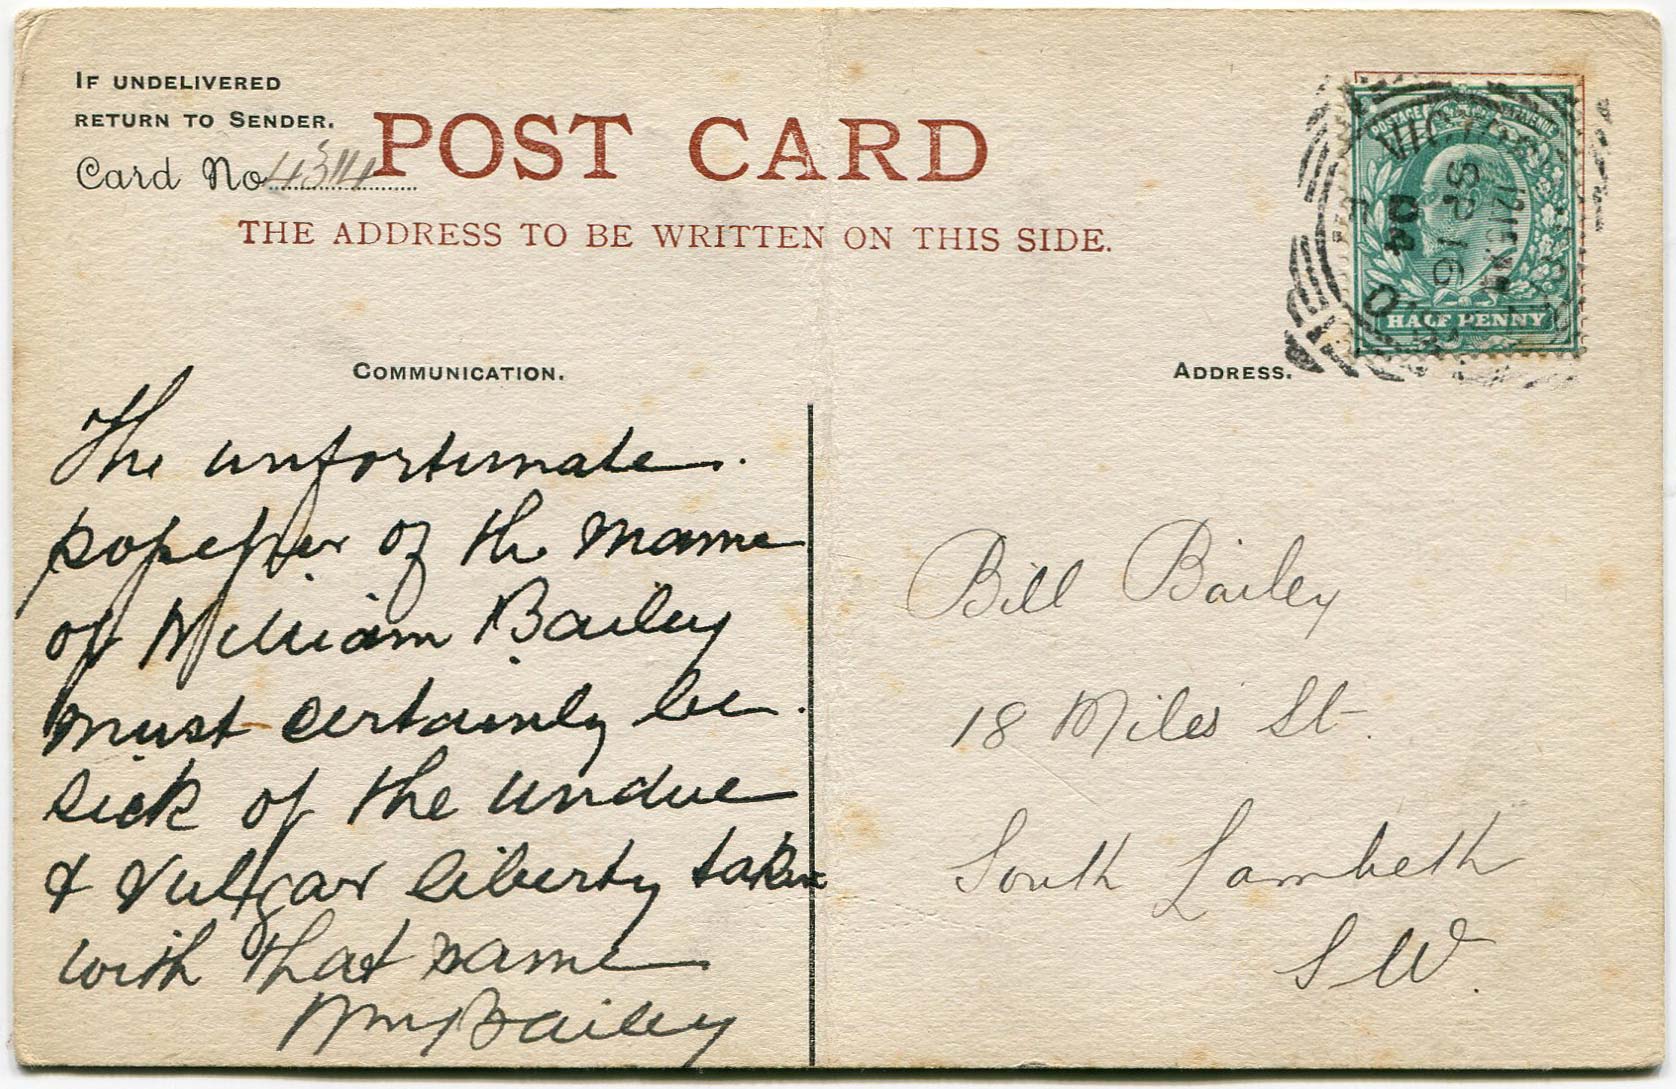 IF UNDELIVERED
RETURN TO SENDER.
Card No 4314
POST CARD
THE ADDRESS TO BE WRITTEN ON THIS SIDE.
POSTAGE REVENUE
HALF PENNY
VICTORIA
SP 16
04
COMMUNICATION.
The unfortunate.
of the name
of William Bailey
must certainly be.
sick of the undue
& vulgar liberty taken
with that name
Wm Bailey
ADDRESS.
Bill Bailey
18 Miles St.
South Lambeth
S W.